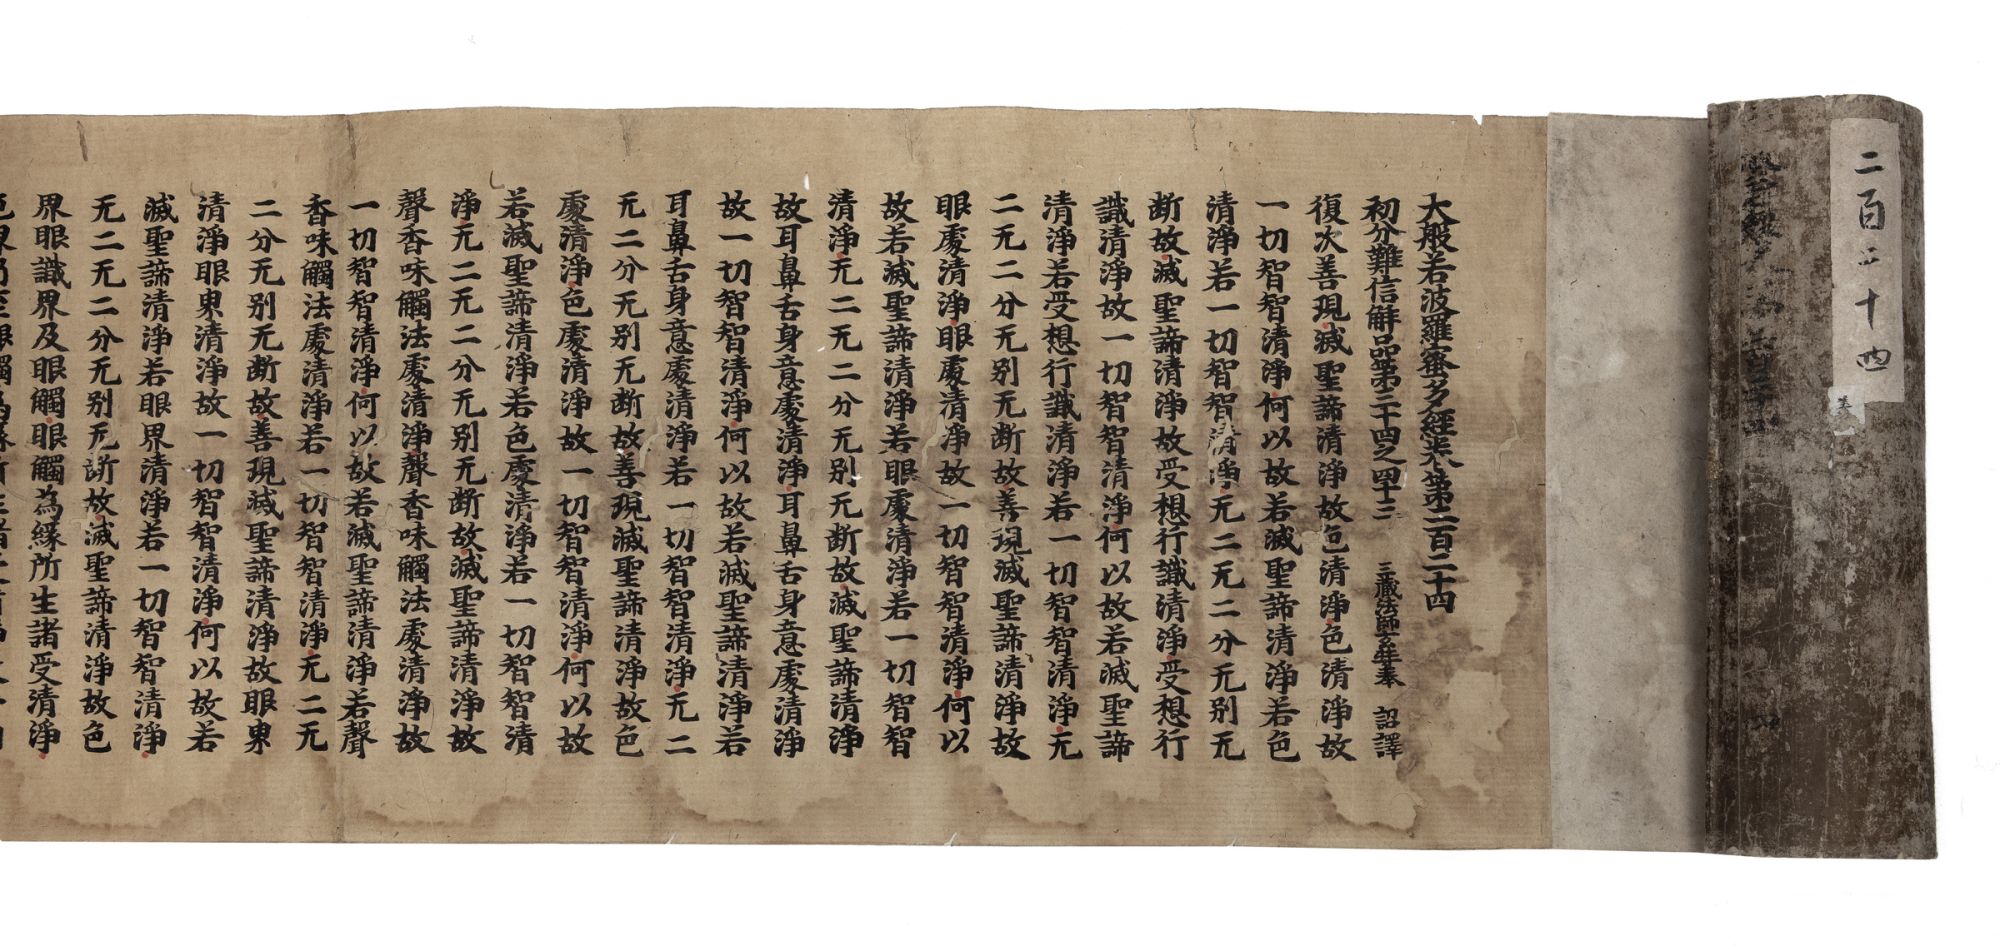 二百二十四
大般若波羅蜜多經卷第二百二十四
初分難信解品第三十四之四十三 三藏法師玄奘奉 詔譯
復次善現滅聖諦清淨故色清淨色清淨故
一切智智清淨何以故若滅聖諦清淨若色
清淨若一切智智清淨无二无二分无別无
断故滅聖諦清淨故受想行識清淨受想行
識清淨故一切智智清淨何以故若滅聖諦
清淨若受想行識清淨若一切智智清淨无
二无二分无別无断故善現滅聖諦清淨故
眼處清淨眼處清淨故一切智智清淨何以
故若滅聖諦清淨若眼處清淨若一切智智
清淨无二无二分无別无断故滅聖諦清淨
故耳鼻舌身意處清淨耳鼻舌身意處清淨
故一切智智清淨何以故若滅聖諦清淨若
耳鼻舌身意處清淨若一切智智清淨无二
无二分无別无断故善現滅聖諦清淨故色
處清淨色處清淨故一切智智清淨何以故
若滅聖諦清淨若色處清淨若一切智智清
淨无二无二分无別无断故滅聖諦清淨故
聲香味觸法處清淨聲香味觸法處清淨故
一切智智清淨何以故若滅聖諦清淨若聲
香味觸法處清淨若一切智智清淨无二无
二分无別无断故善現滅聖諦清淨故眼界
清淨眼界清淨故一切智智清淨何以故若
滅聖諦清淨若眼界清淨若一切智智清淨
无二无二分无別无断故滅聖諦清淨故色
界眼識界及眼觸眼觸為緣所生諸受清淨